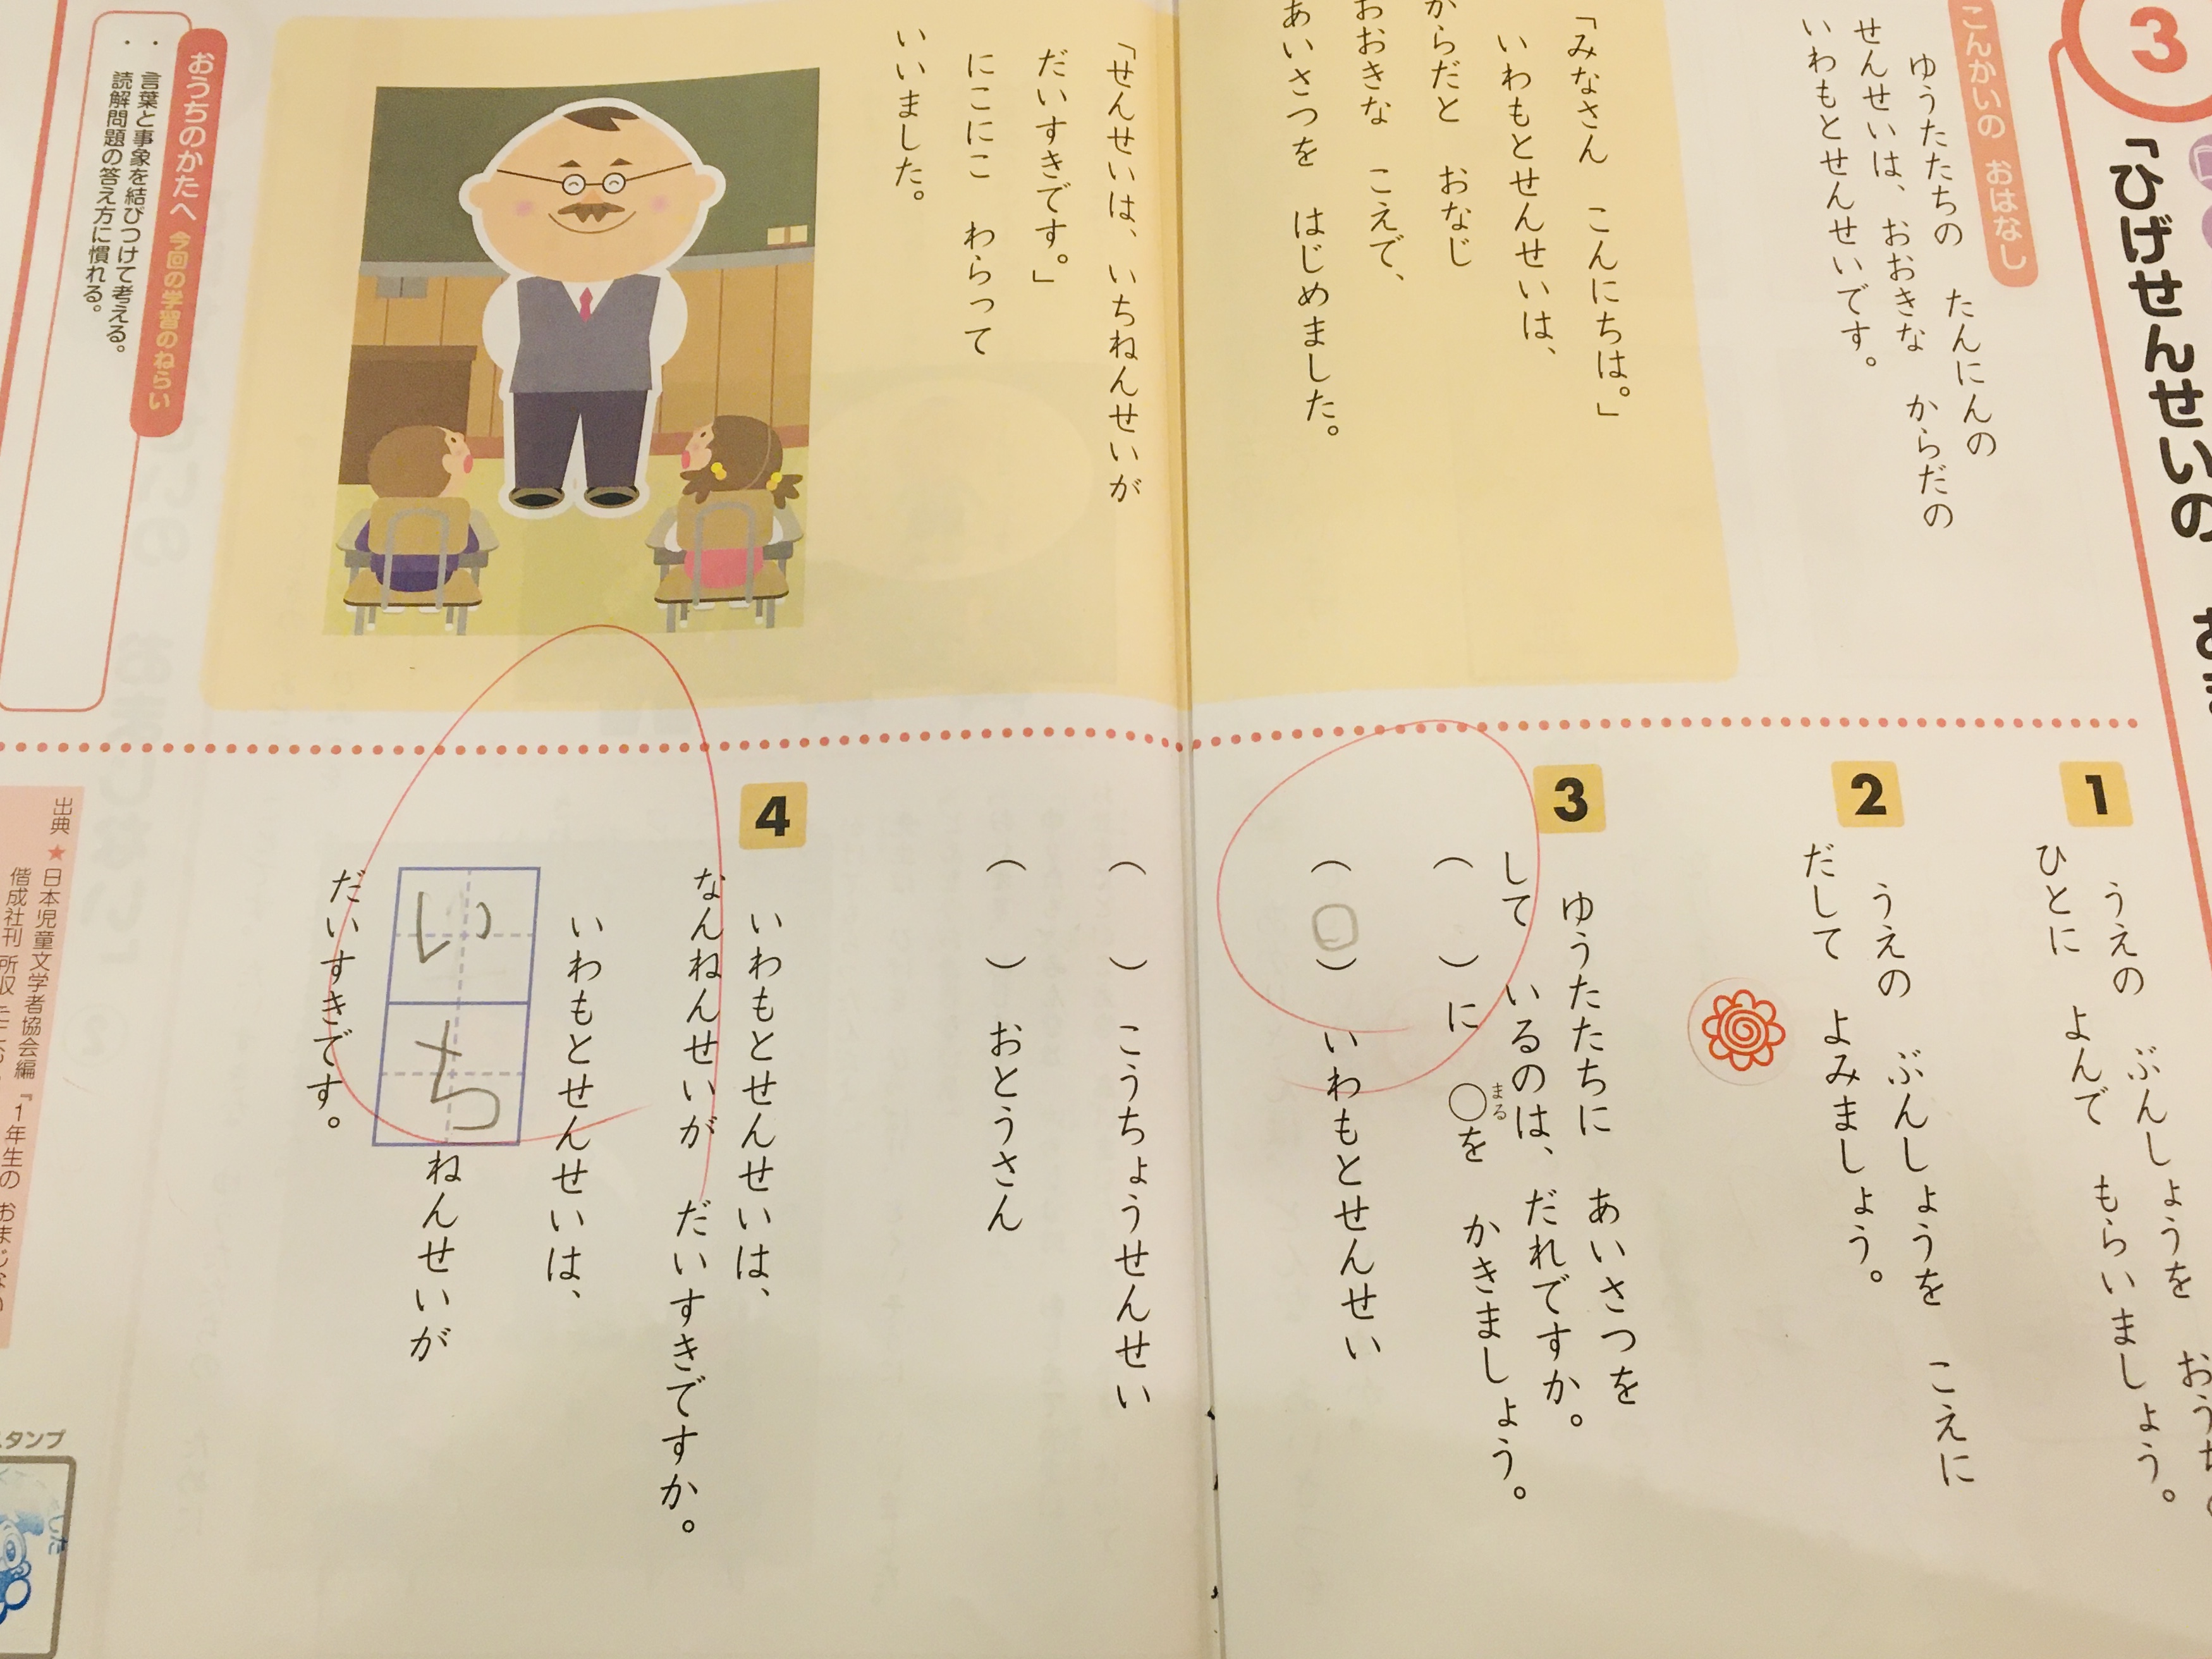 3
「ひげせんせいの
こんかいの おはなし
ゆうたたちの たんにんの
せんせいは、おおきな からだの
いわもとせんせいです。
「みなさん こんにちは。」
いわもとせんせいは、
からだと おなじ
おおきな こえで、
あいさつを はじめました。
「せんせいは、いちねんせいが
だいすきです。」
にこにこ わらって
いいました。
おうちのかたへ 今回の学習のねらい
・言葉と事象を結びつけて考える。
・読解問題の答え方に慣れる。
1
うえの ぶんしょうを
ひとに よんで もらいましょう。
2
うえの ぶんしょうを こえに
だして よみましょう。
3
ゆうたたちに あいさつを
して いるのは、だれですか。
( )に ○を かきましょう。
まる
(○)いわもとせんせい
( )こうちょうせんせい
( )おとうさん
4
いわもとせんせいは、
なんねんせいが だいすきですか。
いわもとせんせいは、
いちねんせいが
だいすきです。
出典 ★日本児童文学者協会編 『1年生の おまじない
偕成社刊 所収
タンプ